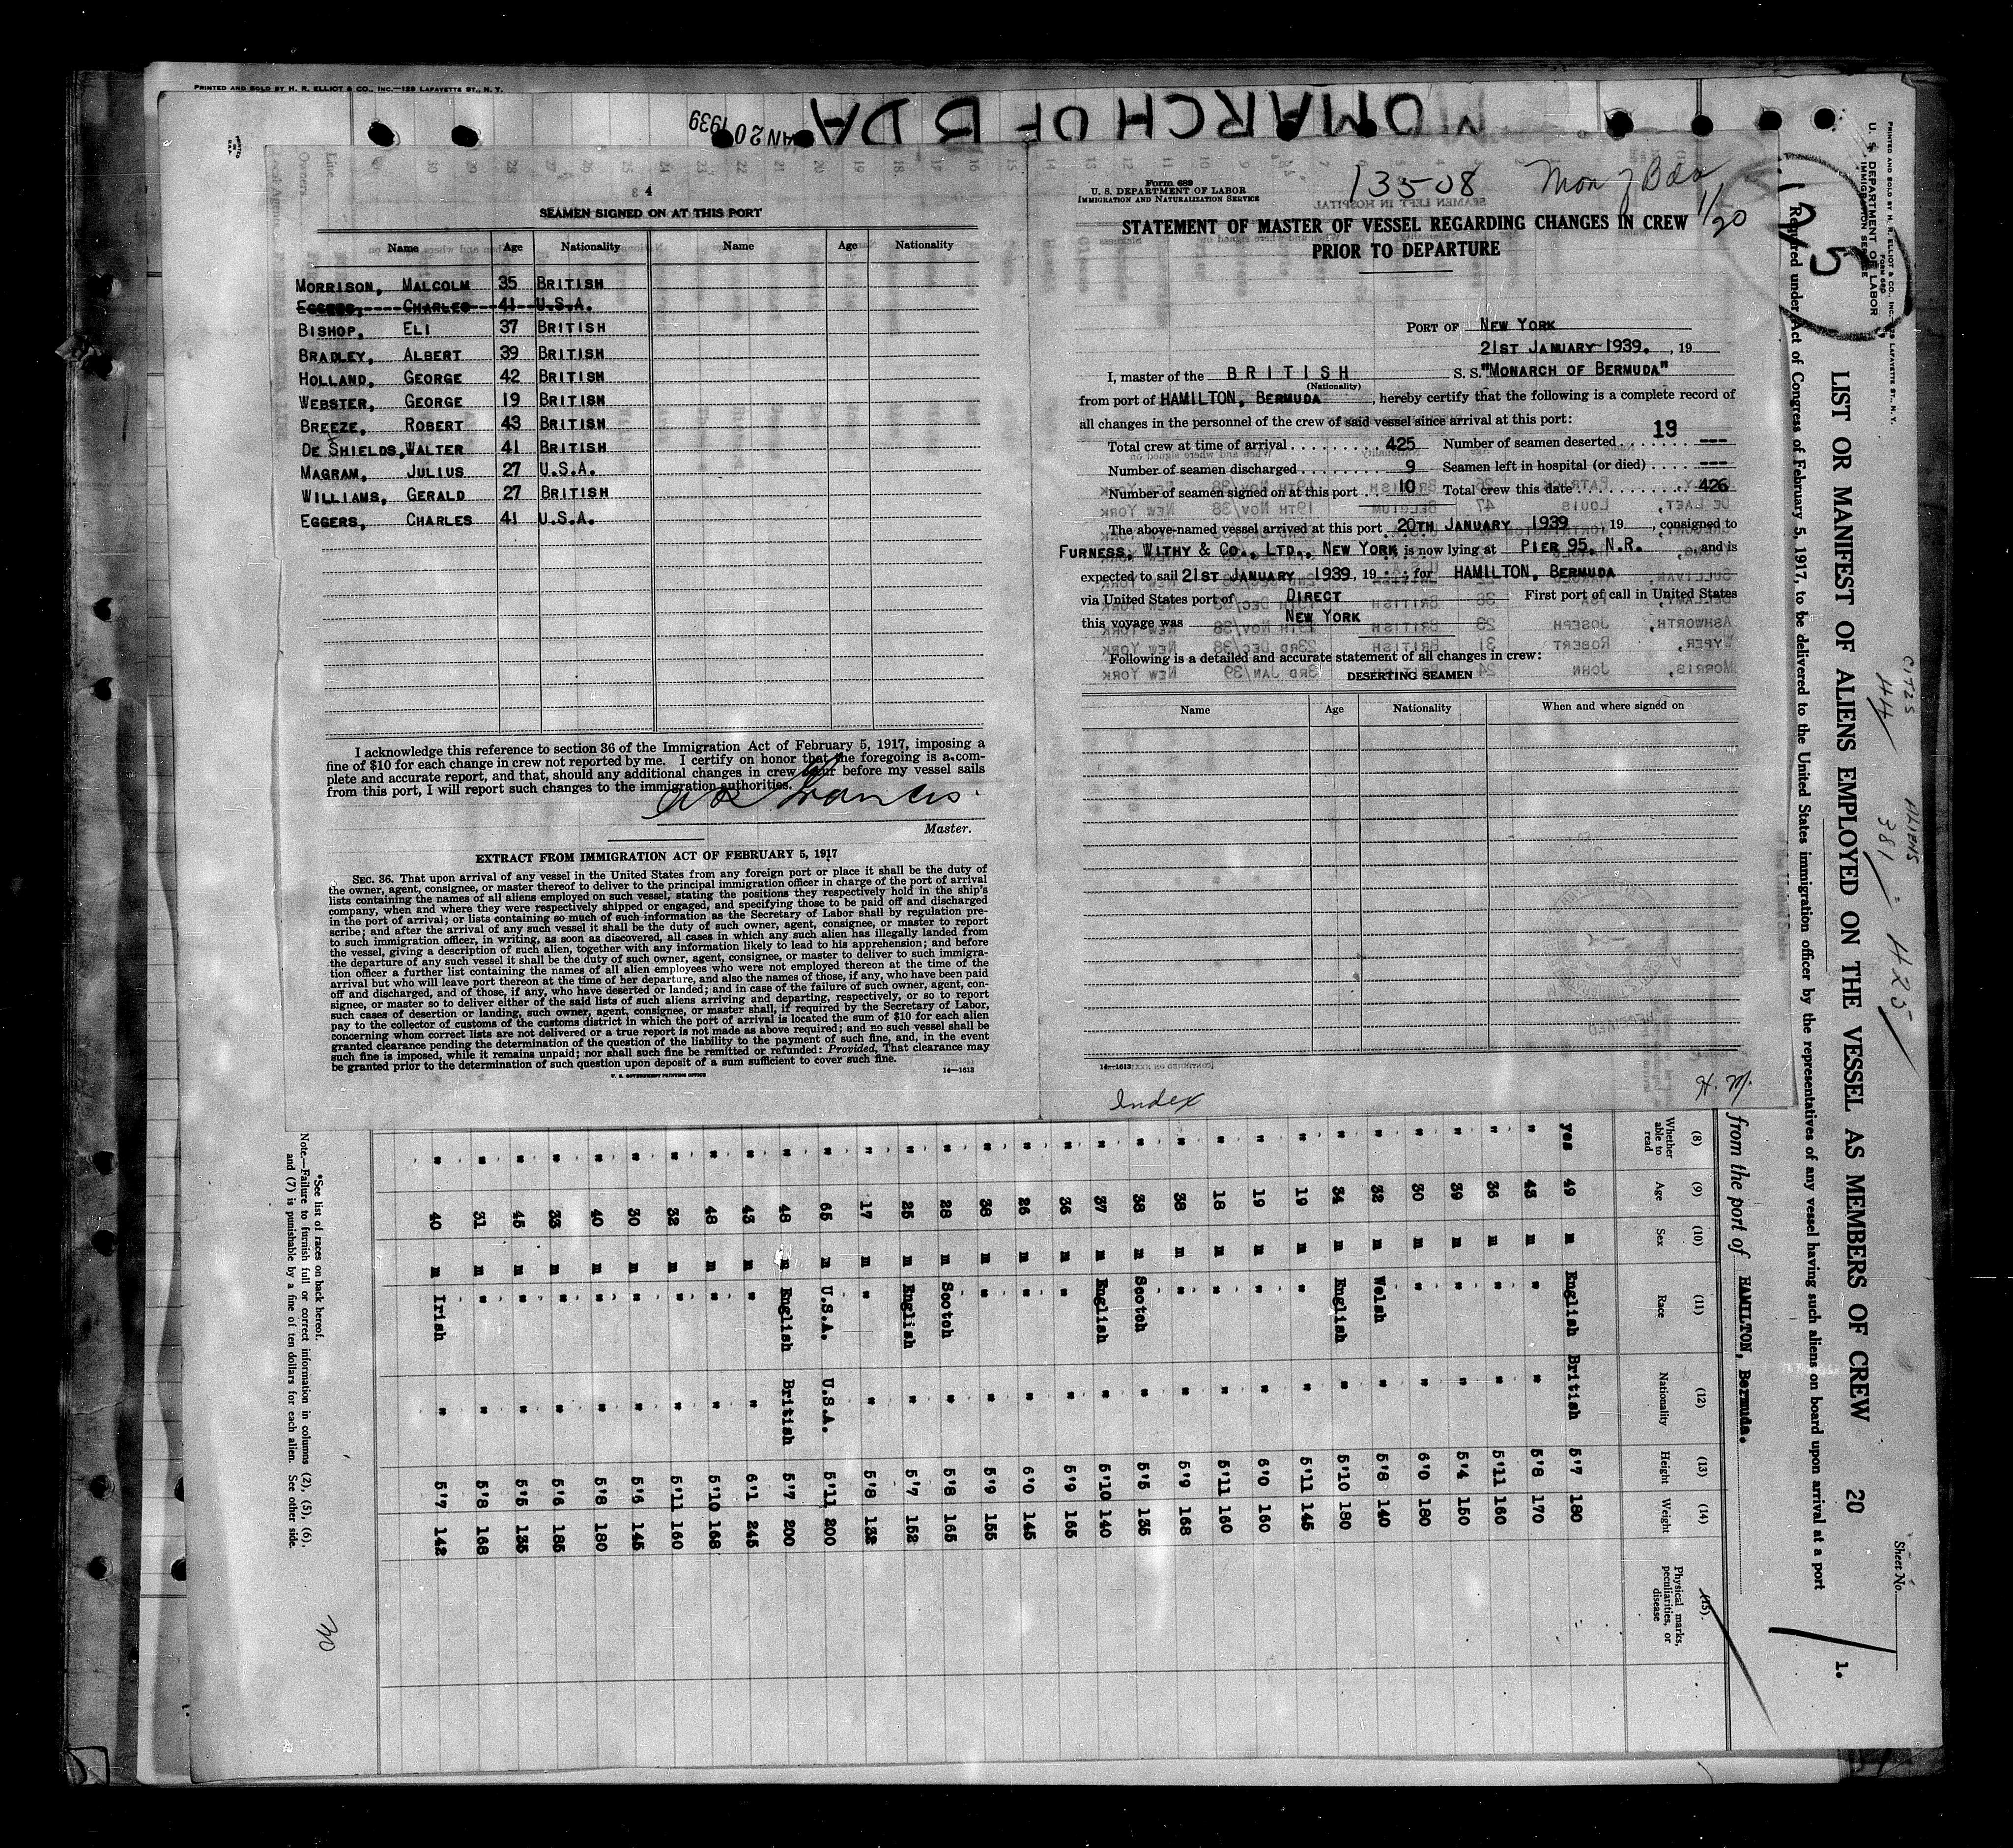 PRINTED AND SOLD BY H. R. ELLIOT & CO., INC.—129 LAFAYETTE ST., N. Y.
MONARCH OF BDA
JAN 20 1939
4
SEAMEN SIGNED ON AT THIS PORT
Name Age Nationality Name Age Nationality
MORRISON, MALCOLM 35 BRITISH
EGGERS, CHARLES 41 U.S.A.
BISHOP, ELI 37 BRITISH
BRADLEY, ALBERT 39 BRITISH
HOLLAND, GEORGE 42 BRITISH
WEBSTER, GEORGE 19 BRITISH
BREEZE, ROBERT 43 BRITISH
DE SHIELDS, WALTER 41 BRITISH
MAGRAM, JULIUS 27 U.S.A.
WILLIAMS, GERALD 27 BRITISH
EGGERS, CHARLES 41 U.S.A.
I acknowledge this reference to section 36 of the Immigration Act of February 5, 1917, imposing a
fine of $10 for each change in crew not reported by me. I certify on honor that the foregoing is a com-
plete and accurate report, and that, should any additional changes in crew occur before my vessel sails
from this port, I will report such changes to the immigration authorities.
Master.
EXTRACT FROM IMMIGRATION ACT OF FEBRUARY 5, 1917
SEC. 36. That upon arrival of any vessel in the United States from any foreign port or place it shall be the duty of
the owner, agent, consignee, or master thereof to deliver to the principal immigration officer in charge of the port of arrival
lists containing the names of all aliens employed on such vessel, stating the positions they respectively hold in the ship's
company, when and where they were respectively shipped or engaged, and specifying those to be paid off and discharged
in the port of arrival; or lists containing so much of such information as the Secretary of Labor shall by regulation pre-
scribe; and after the arrival of any such vessel it shall be the duty of such owner, agent, consignee, or master to report
to such immigration officer, in writing, as soon as discovered, all cases in which any such alien has illegally landed from
the vessel, giving a description of such alien, together with any information likely to lead to his apprehension; and before
the departure of any such vessel it shall be the duty of such owner, agent, consignee, or master to deliver to such immigra-
tion officer a further list containing the names of all alien employees who were not employed thereon at the time of the
arrival but who will leave port thereon at the time of her departure, and also the names of those, if any, who have been paid
off and discharged, and of those, if any, who have deserted or landed; and in case of the failure of such owner, agent, con-
signee, or master so to deliver either of the said lists of such aliens arriving and departing, respectively, or so to report
such cases of desertion or landing, such owner, agent, consignee, or master shall, if required by the Secretary of Labor,
pay to the collector of customs of the customs district in which the port of arrival is located the sum of $10 for each alien
concerning whom correct lists are not delivered or a true report is not made as above required; and no such vessel shall be
granted clearance pending the determination of the question of the liability to the payment of such fine, and, in the event
such fine is imposed, while it remains unpaid; nor shall such fine be remitted or refunded: Provided, That clearance may
be granted prior to the determination of such question upon deposit of a sum sufficient to cover such fine.
U. S. GOVERNMENT PRINTING OFFICE 14—1613
Form 689
U. S. DEPARTMENT OF LABOR
IMMIGRATION AND NATURALIZATION SERVICE
13508
Mon of Bda
1/20
STATEMENT OF MASTER OF VESSEL REGARDING CHANGES IN CREW
PRIOR TO DEPARTURE
PORT OF NEW YORK
21ST JANUARY 1939. , 19
I, master of the BRITISH S. S. "MONARCH OF BERMUDA"
(Nationality)
from port of HAMILTON, BERMUDA , hereby certify that the following is a complete record of
all changes in the personnel of the crew of said vessel since arrival at this port:
13
Total crew at time of arrival 425 Number of seamen deserted ---
Number of seamen discharged 9 Seamen left in hospital (or died) ---
Number of seamen signed on at this port 10 Total crew this date 426
The above-named vessel arrived at this port 20TH JANUARY 1939 , 19 , consigned to
FURNESS, WITHY & CO., LTD., NEW YORK is now lying at PIER 95, N.R. , and is
expected to sail 21ST JANUARY 1939, 19 for HAMILTON, BERMUDA
via United States port of DIRECT First port of call in United States
this voyage was NEW YORK
Following is a detailed and accurate statement of all changes in crew:
DESERTING SEAMEN
Name Age Nationality When and where signed on
14—1613
Index
H. M.
PRINTED AND SOLD BY H. R. ELLIOT & CO., INC.—129 LAFAYETTE ST., N. Y.
Form 680
U. S. DEPARTMENT OF LABOR
IMMIGRATION SERVICE
LIST OR MANIFEST OF ALIENS EMPLOYED ON THE VESSEL AS MEMBERS OF CREW 20
Sheet No.
1.
Required under Act of Congress of February 5, 1917, to be delivered to the United States immigration officer by the representatives of any vessel having such aliens on board upon arrival at a port
CITZS 44
ALIENS 381 = 425
from the port of HAMILTON, Bermuda.
(8) (9) (10) (11) (12) (13) (14) (15)
Whether able to read Age Sex Race Nationality Height Weight Physical marks, peculiarities, or disease
yes 49 m English British 5'7 180
" 43 m " " 5'8 170
" 36 m " " 5'11 160
" 39 m " " 5'4 150
" 30 m " " 6'0 180
" 32 m Welsh " 5'8 140
" 34 m English " 5'10 180
" 19 m " " 5'11 145
" 19 m " " 6'0 160
" 18 m " " 5'11 160
" 38 m " " 5'9 168
" 38 m Scotch " 5'5 135
" 37 m English " 5'10 140
" 36 m " " 5'9 165
" 26 m " " 6'0 145
" 38 m " " 5'9 155
" 28 m Scotch " 5'8 165
" 25 m English " 5'7 152
" 17 m " " 5'8 132
" 65 m U.S.A. U.S.A. 5'11 200
" 48 m English British 5'7 200
" 43 m " " 6'1 245
" 48 m " " 5'10 168
" 32 m " " 5'11 160
" 30 m " " 5'6 145
" 40 m " " 5'8 180
" 33 m " " 5'6 185
" 45 m " " 5'5 135
" 31 m " " 5'8 168
" 40 m Irish " 5'7 142
*See list of races on back hereof.
Note.—Failure to furnish full or correct information in columns (2), (5), (6),
and (7) is punishable by a fine of ten dollars for each alien. See other side.